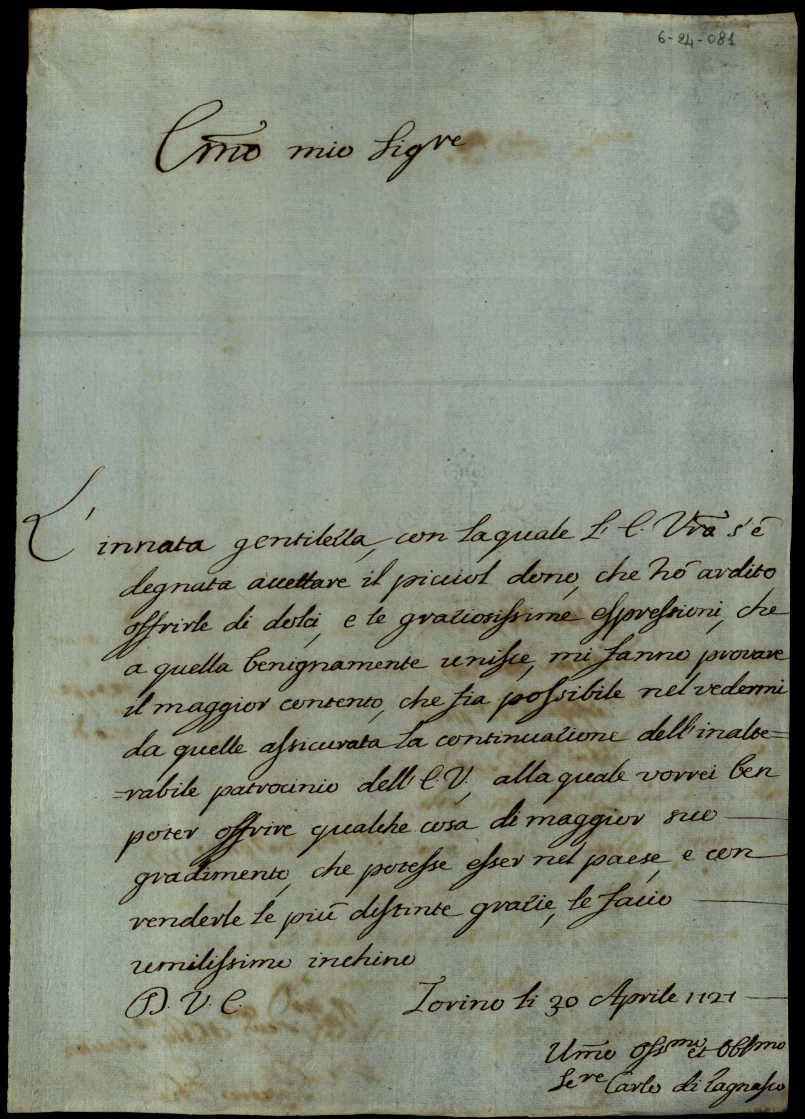 6-24-081
Em̃o mio Sig.re
L'innata gentilezza, con la quale l'E. Vr̃a s'è
degnata accettare il picciol dono, che hò ardito
offrirle di dolci, e le graziosissime espressioni, che
a quella benignamente unisce, mi fanno provare
il maggior contento, che sia possibile nel vedermi
da quelle assicurata la continuazione dell'inalte=
=rabile patrocinio dell'E.V., alla quale vorrei ben
poter offrire qualche cosa di maggior suo
gradimento, che potesse esser nel paese, e con
renderle le più distinte grazie, le faccio
umilissimo inchino
D. V. E. Torino li 30 Aprile 1721
Um̃o Oss.mo et Obl.mo
Se.re Carlo di